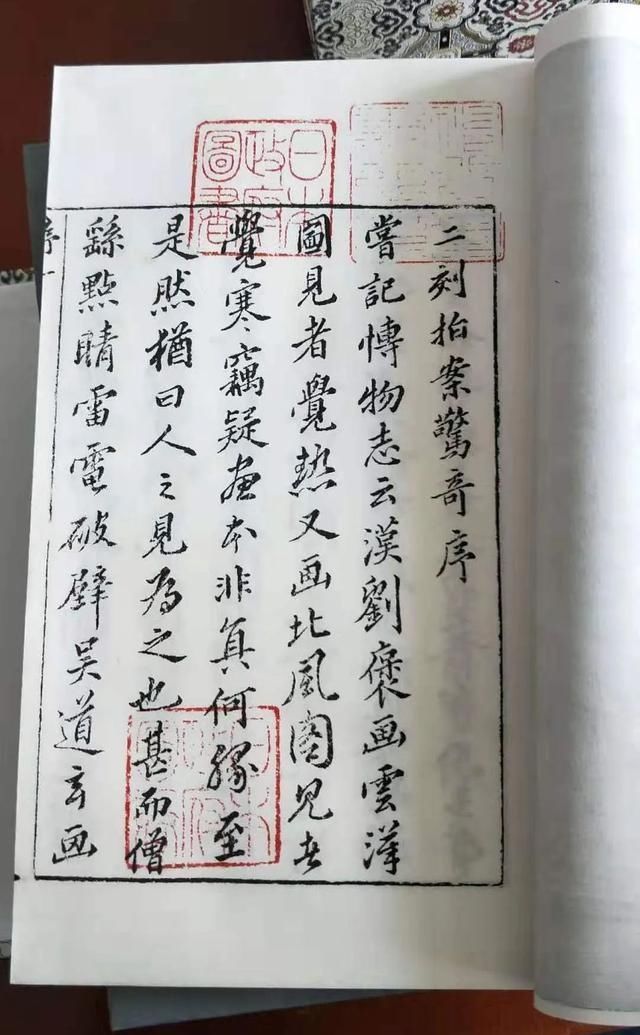 二刻拍案驚奇序
嘗記愽物志云漢劉褒画雲漢
圖見者覺熱又画北風圖見者
覺寒竊疑畫本非真何緣至
是然猶曰人之見為之也甚而僧
繇點睛雷電破壁吳道玄画
序一
日本政府圖書